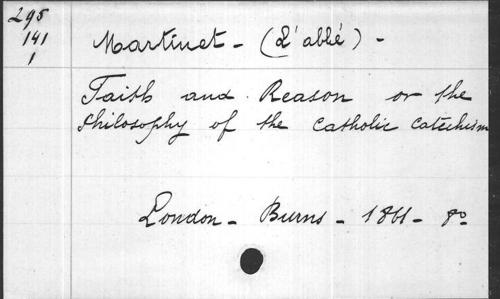 295
141
1
Martinet - (L'abbé) -
Faith and Reason or the
Philosophy of the Catholic Catechism
London - Burns - 1861 - 8o